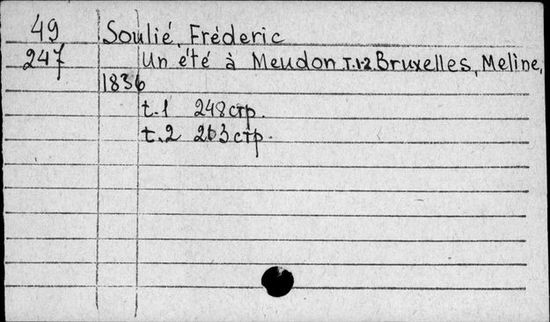 49 Soulié, Fréderic
247 Un été à Meudon T.1-2 Bruxelles, Meline,
1836
t.1 248 стр.
t.2 263 стр.